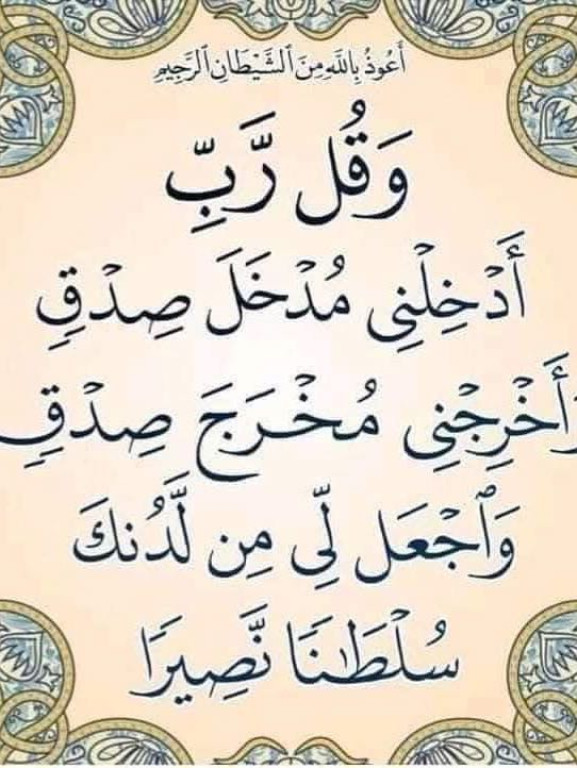 أَعُوذُ بِاللَّهِ مِنَ ٱلشَّيْطَانِ ٱلرَّجِيمِ
وَقُل رَّبِّ
أَدْخِلْنِى مُدْخَلَ صِدْقٍ
وَأَخْرِجْنِى مُخْرَجَ صِدْقٍ
وَٱجْعَل لِّى مِن لَّدُنكَ
سُلْطَـٰنًا نَّصِيرًا